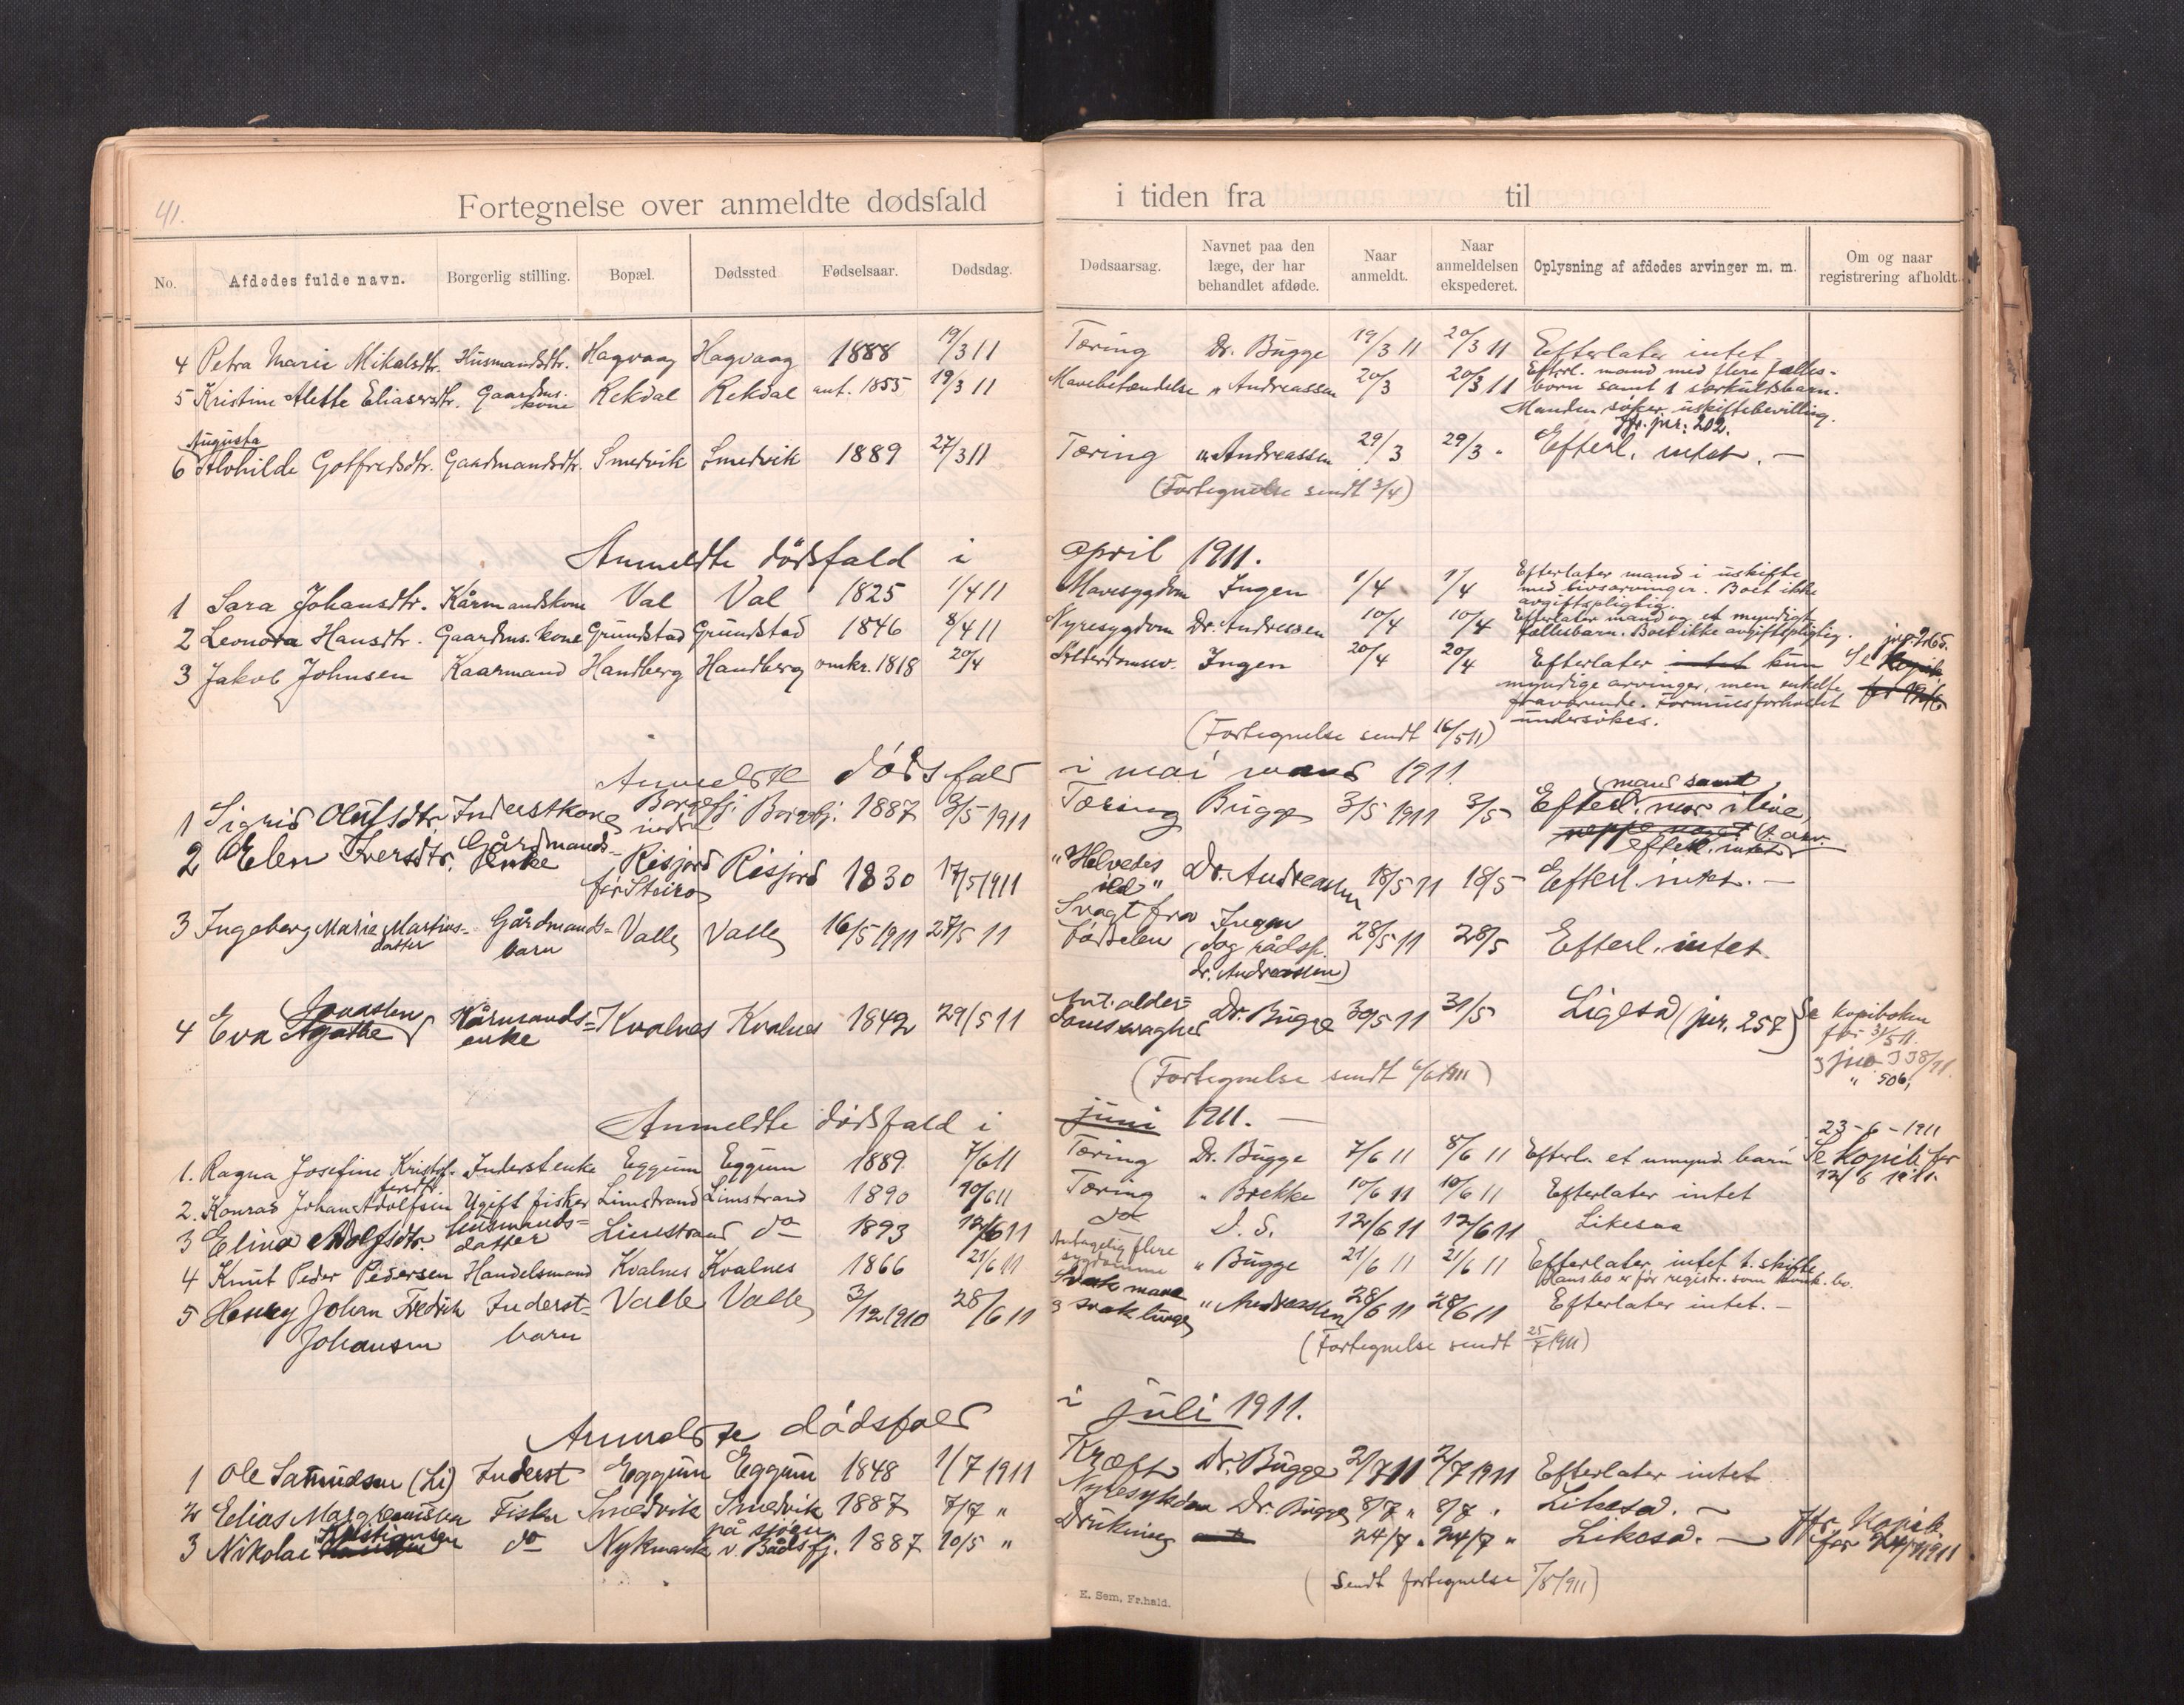 41.
Fortegnelse over anmeldte dødsfald i tiden fra til
No. Afdødes fulde navn. Borgerlig stilling. Bopæl. Dødssted Fødselsaar. Dødsdag. Dødsaarsag. Navnet paa den læge, der har behandlet afdøde. Naar anmeldt. Naar anmeldelsen ekspederet. Oplysning af afdødes arvinger m. m. Om og naar registrering afholdt.
4 Petra Marie Mikalsdtr. Husmandsdtr. Hagvaag Hagvaag 1888 19/3 11 Tæring Dr. Bugge 19/3 11 20/3 11 Efterlater intet
5 Kristine Alette Eliasersdtr. Gaardms. kone Rekdal Rekdal ant. 1855 19/3 11 Mavebetændelse " Andreassen 20/3 20/3 11 Efterl. mand med flere fælles-
børn samt 1 særkuldsbarn.
Manden søker uskiftebevilling.
Jfr. jnr. 202.
Augusta
6 Alvhilde Gotfredsdtr. Gaardmandsdtr. Smedvik Smedvik 1889 27/3 11 Tæring " Andreassen 29/3 29/3 " Efterl. intet. —
(Fortegnelse sendt 3/4)
Anmeldte dödsfald i april 1911.
1 Sara Johansdtr. Kårmandskone Val Val 1825 1/4 11 Mavesygdom Ingen 1/4 1/4 Efterlater mand i uskifte
med livsarvinger. Boet ikke
avgiftspligtig.
2 Leonora Hansdtr. Gaardms. kone Grundstad Grundstad 1846 8/4 11 Nyresygdom Dr. Andressen 10/4 10/4 Efterlater mand og et myndigt
fællesbarn. Boet ikke avgiftspligtig.
3 Jakob Johnsen Kaarmand Handberg Handberg omkr. 1818 20/4 Alderdomssv. Ingen 20/4 20/4 Efterlater intet kun Se Kopib
jnr. 265.
myndige arvinger, men enkelte
fraværende. Formuesforholdet
undersökes.
(Fortegnelse sendt 16/5 11)
Anmeldte dödsfald i mai maaned 1911
1 Sigrid Olufsdtr. Inderstkone Borgefj. indre Borgefj. 1887 3/5 1911 Tæring Bugge 3/5 1911 3/5 Efterl. mand samt
efterl. intet
2 Elen Iversdtr. Gårdmands-enke Risjord Risjord 1830 17/5 1911 "Helvedes ild" Dr. Andreassen 18/5 11 18/5 Efterl. intet. —
3 Ingeborg Marie Martins-datter Gårdmands-barn Valle Valle 16/5 1911 27/5 11 Svagt fra fødselen Ingen 28/5 11 28/5 Efterl. intet.
(dog rådsp.
dr. Andreassen)
4 Eva Agathe Kårmands-enke Kvalnes Kvalnes 1842 29/5 11 Ant. alder-domssvaghed Dr. Bugge 30/5 11 31/5 Ligeså (jnr. 257) Se kopiboken
for 31/5 11.
" 506.
(Fortegnelse sendt 6/6 1911)
Anmeldte dödsfald i juni 1911. —
23-6-1911
1. Ragna Josefine Kristof-fersdtr. Inderstenke Eggum Eggum 1889 7/6 11 Tæring Dr. Bugge 7/6 11 8/6 11 Efterl. et umynd. barn Se Kopib. for
12/6 1911.
2. Konrad Johan Adolfsen Ugift fisker Limstrand Limstrand 1890 10/6 11 Tæring " Brekke 10/6 11 10/6 11 Efterlater intet
3 Elina Adolfsdtr. husmands-datter Limstrand do 1893 12/6 11 do D. S. 12/6 11 12/6 11 Likesaa
4 Knut Peder Pedersen Handelsmand Kvalnes Kvalnes 1866 21/6 11 Antagelig flere sygdomme " Bugge 21/6 11 21/6 11 Efterlater intet t. skifte
Hans bo er før registr. som konk. bo.
5 Henry Johan Fredrik Inderst- Valle Valle 3/12 1910 28/6 11 Svak mave " Andreassen 28/6 11 28/6 11 Efterlater intet. —
Johansen barn & svak lunge
(Fortegnelse sendt 25/7 1911)
Anmeldte dödsfald i juli 1911.
1 Ole Samudsen (Li) Inderst Eggum Eggum 1848 1/7 1911 Kræft Dr. Bugge 2/7 11 2/7 1911 Efterlater intet
2 Elias Fisker Smedvik Smedvik 1887 7/7 " Nyresykdom Dr. Bugge 8/7 " 8/7 " Likeså. —
3 Nikolai Kristiansen do Nykmark på sjøen v. Båtsfj. 1887 10/5 " Drukning 24/7 " 24/7 " Likeså. — Jfr. Kopib.
for 24/7 1911
(Sendt fortegnelse 5/8 1911)
E. Sem, Fr.hald.